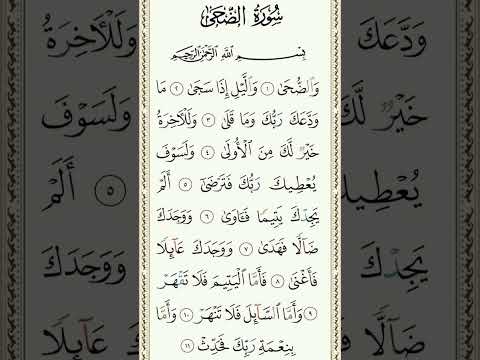 سُورَةُ الضُّحَىٰ
بِسْمِ اللَّهِ الرَّحْمَٰنِ الرَّحِيمِ
وَالضُّحَىٰ ١ وَاللَّيْلِ إِذَا سَجَىٰ ٢ مَا
وَدَّعَكَ رَبُّكَ وَمَا قَلَىٰ ٣ وَلَلْآخِرَةُ
خَيْرٌ لَّكَ مِنَ الْأُولَىٰ ٤ وَلَسَوْفَ
يُعْطِيكَ رَبُّكَ فَتَرْضَىٰ ٥ أَلَمْ
يَجِدْكَ يَتِيمًا فَـَٔاوَىٰ ٦ وَوَجَدَكَ
ضَآلًّا فَهَدَىٰ ٧ وَوَجَدَكَ عَآئِلًا
فَأَغْنَىٰ ٨ فَأَمَّا الْيَتِيمَ فَلَا تَقْهَرْ
٩ وَأَمَّا السَّآئِلَ فَلَا تَنْهَرْ ١٠ وَأَمَّا
بِنِعْمَةِ رَبِّكَ فَحَدِّثْ ١١
وَدَّعَكَ
خَيْرٌ لَّكَ
يُعْطِيكَ
يَجِدْكَ
ضَآلًّا
وَلَلْآخِرَةُ
وَلَسَوْفَ
٥ أَلَمْ
وَوَجَدَكَ
عَآئِلًا